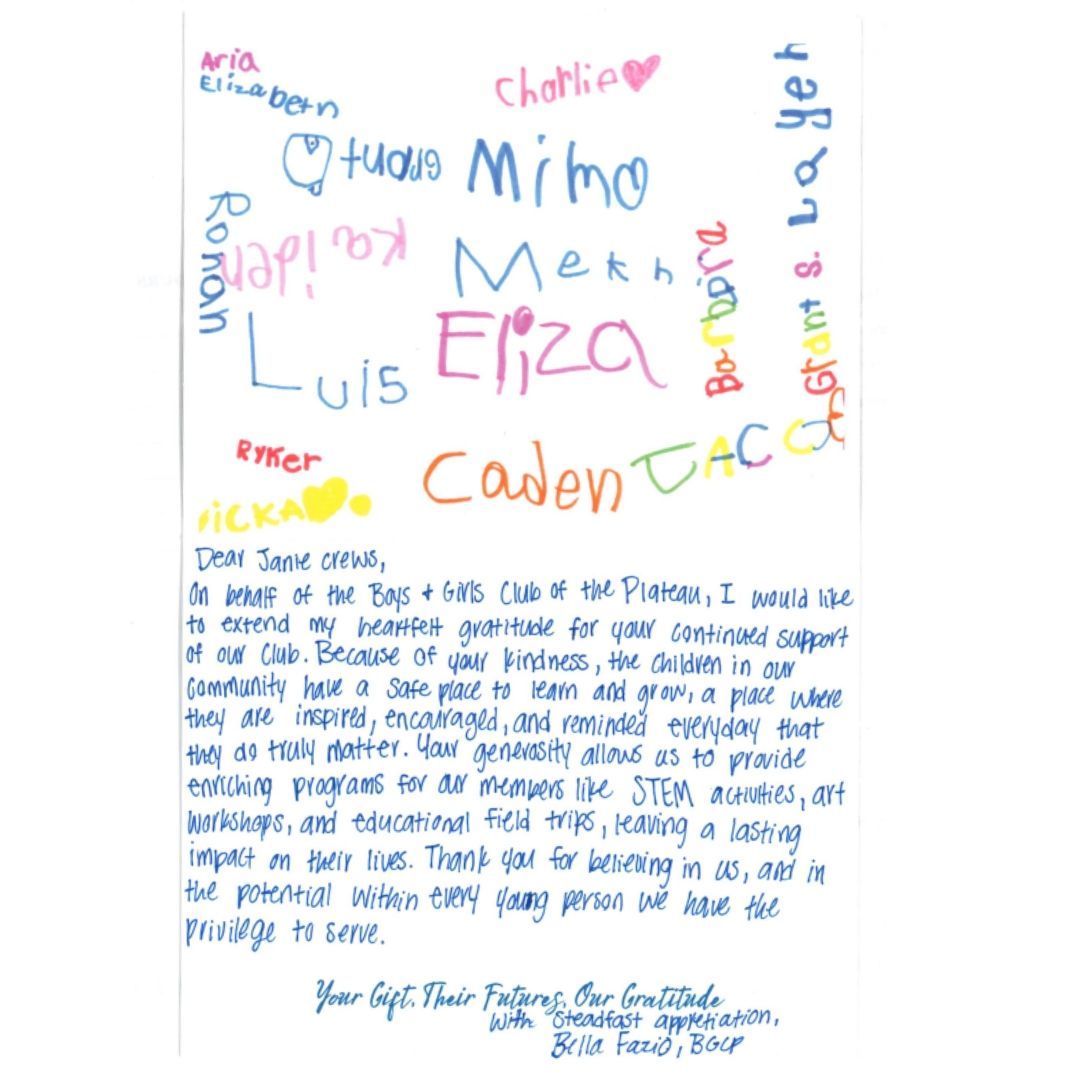 Aria
Elizabeth
Charlie
Grant
Mimo
Layeh
Ronan
Kaiden
Mekh
Barbara
Grant S.
Luis
Eliza
Ryker
Caden
JACC
Dear Janie crews,
On behalf of the Boys + Girls Club of the Plateau, I would like
to extend my heartfelt gratitude for your continued support
of our Club. Because of your kindness, the children in our
community have a safe place to learn and grow, a place where
they are inspired, encouraged, and reminded everyday that
they do truly matter. Your generosity allows us to provide
enriching programs for our members like STEM activities, art
workshops, and educational field trips, leaving a lasting
impact on their lives. Thank you for believing in us, and in
the potential within every young person we have the
privilege to serve.
Your Gift. Their Futures. Our Gratitude
With steadfast appretiation,
Bella Fazio, BGCP